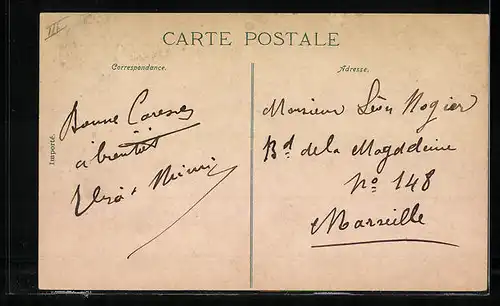 CARTE POSTALE
Correspondance.
Adresse.
Importé.
Bonne
à bientôt
Monsieur Léon Nogier
Bd de la Magdeleine
No 148
Marseille